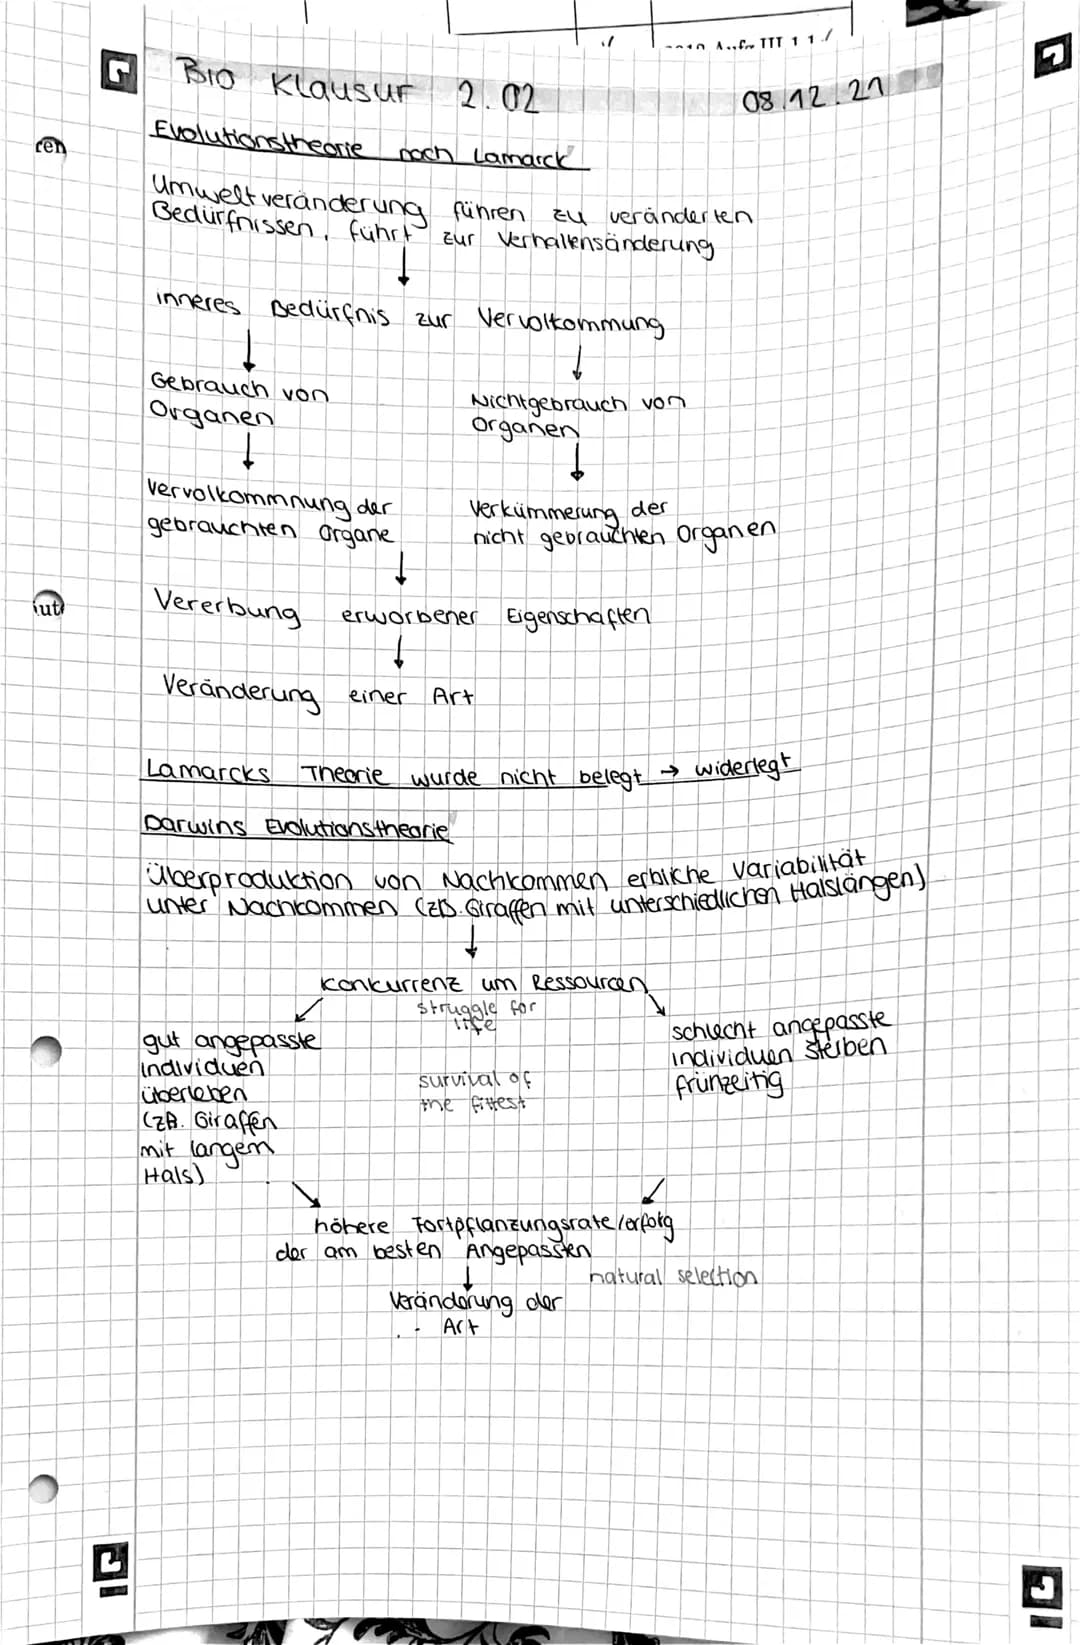 2010 Aufg III 1 1 /
Bio Klausur 2.02 08.12.21
ren
Evolutionstheorie nach Lamarck
Umweltveränderung führen zu veränderten
Bedürfnissen, führt zur Verhaltensänderung
inneres Bedürfnis zur Vervolkommung
Gebrauch von
Organen
Nichtgebrauch von
Organen
Vervolkommnung der
gebrauchten Organe
Verkümmerung der
nicht gebrauchten Organen
Vererbung erworbener Eigenschaften
Veränderung einer Art
Lamarcks Theorie wurde nicht belegt → widerlegt
Darwins Evolutionstheorie
Überproduktion von Nachkommen erbliche Variabilität
unter Nachkommen (zB. Giraffen mit unterschiedlichen Halslängen)
Konkurrenz um Ressourcen
struggle for
life
gut angepasste
Individuen
überleben
(zB. Giraffen
mit langem
Hals)
survival of
the fittest
schlecht angepasste
Individuen sterben
frühzeitig
höhere Fortpflanzungsrate/erfolg
der am besten Angepassten
natural selection
Veränderung der
Art